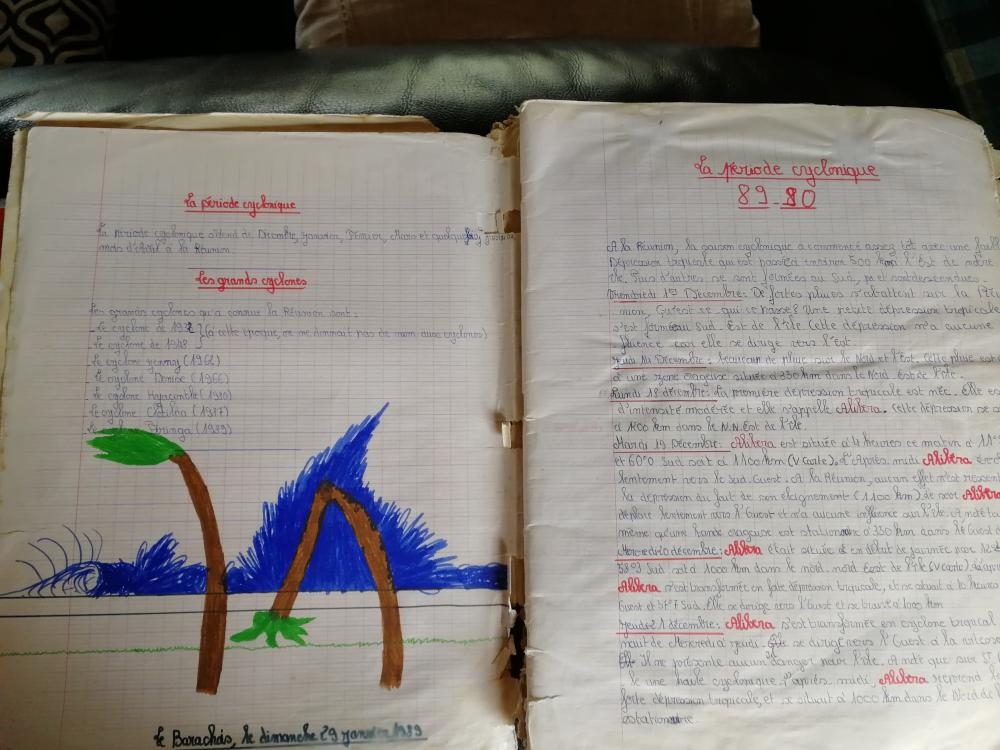 La période cyclonique
La période cyclonique s'étend de Décembre, Janvier, Février, Mars et quelques fois jusqu'au
mois d'Avril à la Réunion
Les grands cyclones
Les grands cyclones qu'a connue la Réunion sont:
- Le cyclone de 1932 } (à cette époque, on ne donnait pas de nom aux cyclones)
- Le cyclone de 1948
- Le cyclone Jenny (1962)
- Le cyclone Denise (1966)
- Le cyclone Hyacinthe (1980)
- Le cyclone Clotilda (1987)
- Le cyclone Firinga (1989)
Le Barachois, le dimanche 29 janvier 1989
La période cyclonique
89-90
A la Réunion, la saison cyclonique a commencé assez tôt avec une
Dépression tropicale qui est passée à environ 500 km à l'Est de notre
île. Puis d'autres se sont formées au Sud,
Vendredi 1er Décembre: De fortes pluies s'abattent sur la
nion, Qu'est ce qui se passe? Une petite dépression tropicale
s'est formée au Sud-Est de l'île Cette dépression n'a aucune
fluence car elle se dirige vers l'Est.
Jeudi 14 Décembre: beaucoup de pluie sur le Nord et l'Est. Cette pluie est
à une zone orageuse située à 350 km dans le Nord Est de l'île.
Lundi 18 décembre: La première dépression tropicale est née. Elle est
d'intensité modérée et elle s'appelle Alibera. Cette dépression se
à 1400 km dans le N.N.Est de l'île.
Mardi 19 Décembre: Alibera est située à 4 heures ce matin à
et 60°0 Sud soit à 1100 km (V carte). L'Après-midi Alibera
lentement vers le Sud-Ouest. A la Réunion, aucun effet n'est
la dépression du fait de son éloignement (1100 km) de
déplace lentement vers l'Ouest et n'a aucune influence sur l'île. A noté
même qu'une bande orageuse est stationnaire à 350 km dans le
Mercredi 20 décembre: Alibera était située en début de journée par
Sud soit à 1000 km dans le nord-nord Est de l'île (V carte).
Alibera s'est transformée en forte dépression tropicale, et se situait à 10 heures
Ouest et Sud. Elle se dirige vers l'Ouest et se trouve à 1000 km
Jeudi 21 décembre: Alibera s'est transformée en cyclone tropical
nuit de Mercredi à jeudi. Elle se dirige vers l'Ouest à la vitesse
Il ne présente aucun danger pour l'île. A noté que sur
le une houle cyclonique. L'après-midi, Alibera reprend
forte dépression tropicale, et se situait à 1000 km dans le Nord de
stationnaire.